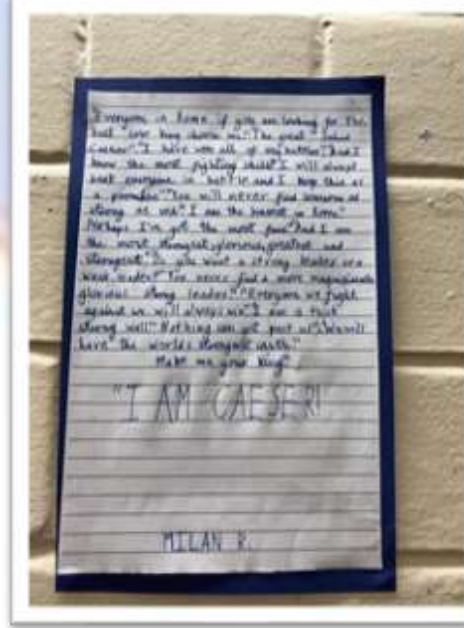 Everyone in Rome if you are looking for the
best ever king choose me." The great "Julius
Caeser". "I have won all of my battles." "And I
know the most fighting skills" I will always
beat everyone in battle and I keep this as
a promise." You will never find someone as
strong as me." I am the bravest in Rome."
Perhaps I've got the most power" And I am
the most strongest, glorious, greatest and
strongest." Do you want a strong leader or a
weak leader?" You never find a more
glorious strong leader." "Everyone we fight
against we will always win." I am a
strong wall." Nothing can get past us". We will
have" the worlds strongest
Make me your King".
"I AM CAESER!"
MILAN R.